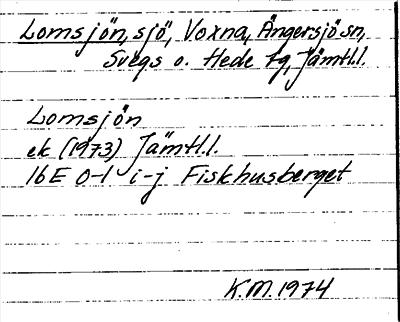 Lomsjön, sjö, Voxna, Ängersjö sn,
Svegs o. Hede tg, Jämtl.l.
Lomsjön
ek (1973) Jämtl.l.
16E 0-1 i-j Fiskhusberget
K.M. 1974